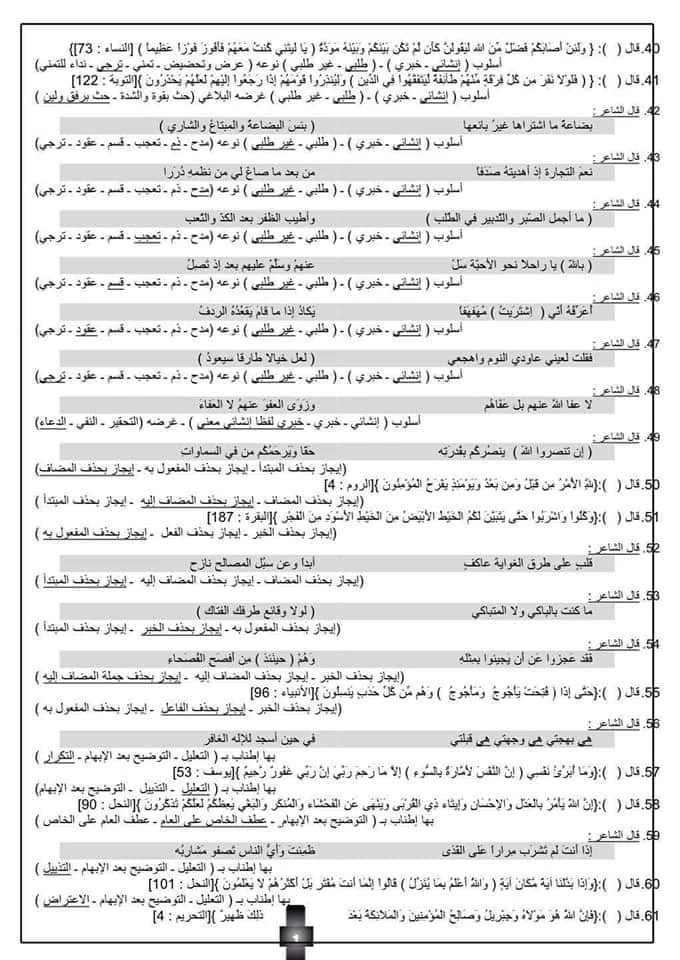 40. قال ( ): { وَلَئِنْ أَصَابَكُمْ فَضْلٌ مِّنَ الله لَيَقُولَنَّ كَأَن لَّمْ تَكُن بَيْنَكُمْ وَبَيْنَهُ مَوَدَّةٌ ( يَا لَيتَنِي كُنتُ مَعَهُمْ فَأَفُوزَ فَوْزاً عَظِيماً ) [النساء : 73]}
أسلوب ( إنشائي - خبري ) - ( طلبي - غير طلبي ) نوعه ( عرض وتحضيض - تمني - ترجي - نداء للتمني)
41. قال ( ): { ( فَلَوْلَا نَفَرَ مِن كُلِّ فِرْقَةٍ مِّنْهُمْ طَآئِفَةٌ لِّيَتَفَقَّهُواْ فِي الدِّينِ ) وَلِيُنذِرُواْ قَوْمَهُمْ إِذَا رَجَعُواْ إِلَيْهِمْ لَعَلَّهُمْ يَحْذَرُونَ }[التوبة : 122]
أسلوب ( إنشائي - خبري ) - ( طلبي - غير طلبي ) غرضه البلاغي (حث بقوة والشدة - حث برفق ولين )
42. قال الشاعر :
بضاعةٌ ما اشتراها غيرُ بائعها ( بئسَ البضاعةُ والمبتاعُ والشاري )
أسلوب ( إنشائي - خبري ) - ( طلبي - غير طلبي ) نوعه (مدح - ذم - تعجب - قسم - عقود - ترجي)
43. قال الشاعر :
نعمَ التجارة إذ أهديتهُ صَدَفاً من بعد ما صاغَ لي من نظمهِ دُرَرا
أسلوب ( إنشائي - خبري ) - ( طلبي - غير طلبي ) نوعه (مدح - ذم - تعجب - قسم - عقود - ترجي)
44. قال الشاعر :
( ما أجمل الصّبر والتّدبير في الطّلب ) وأطيب الظفر بعد الكدّ والتّعب
أسلوب ( إنشائي - خبري ) - ( طلبي - غير طلبي ) نوعه (مدح - ذم - تعجب - قسم - عقود - ترجي)
45. قال الشاعر :
( باللهِ ) يا راحلاً نحو الأحبّة سَلْ عنهمْ وسلّمْ عليهم بعد إذ تَصِلُ
أسلوب ( إنشائي - خبري ) - ( طلبي - غير طلبي ) نوعه (مدح - ذم - تعجب - قسم - عقود - ترجي)
46. قال الشاعر :
أعَرِّفُهُ أنّي ( إشتَريتُ ) مُهَفهَفاً يَكادُ إذا ما قامَ يَقعَدُهُ الردفُ
أسلوب ( إنشائي - خبري ) - ( طلبي - غير طلبي ) نوعه (مدح - ذم - تعجب - قسم - عقود - ترجي)
47. قال الشاعر :
فقلت لعيني عاودي النوم واهجعي ( لعل خيالا طارقا سيعودُ )
أسلوب ( إنشائي - خبري ) - ( طلبي - غير طلبي ) نوعه (مدح - ذم - تعجب - قسم - عقود - ترجي)
48. قال الشاعر :
لا عفا اللهُ عنهم بل عَفاهُم وزَوَى العفوَ عنهمُ لا العَفاءَ
أسلوب ( إنشائي - خبري - خبري لفظا إنشائي معنى ) - غرضه (التحقير - النفي - الدعاء)
49. قال الشاعر :
( إن تنصروا اللهَ ) ينصُركُم بقُدرَتِه حَقّا ويَرحمُكُم من في السماواتِ
(إيجاز بحذف المبتدأ - إيجاز بحذف المفعول به - إيجاز بحذف المضاف)
50. قال ( ):{لِلَّهِ الْأَمْرُ مِن قَبْلُ وَمِن بَعْدُ وَيَوْمَئِذٍ يَفْرَحُ الْمُؤْمِنُونَ }[الروم : 4]
(إيجاز بحذف المضاف - إيجاز بحذف المضاف إليه - إيجاز بحذف المبتدأ )
51. قال ( ):{وَكُلُواْ وَاشْرَبُواْ حَتَّى يَتَبَيَّنَ لَكُمُ الْخَيْطُ الأَبْيَضُ مِنَ الْخَيْطِ الأَسْوَدِ مِنَ الْفَجْرِ }[البقرة : 187]
(إيجاز بحذف الخبر - إيجاز بحذف الفعل - إيجاز بحذف المفعول به )
52. قال الشاعر :
قلبٍ على طرق الغواية عاكفٍ أبداً وعن سبُل المصالح نازح
(إيجاز بحذف المضاف - إيجاز بحذف المضاف إليه - إيجاز بحذف المبتدأ )
53. قال الشاعر :
ما كنت بالباكي ولا المتباكي ( لولا وقائع طرفك الفتاك )
(إيجاز بحذف المفعول به - إيجاز بحذف الخبر - إيجاز بحذف المبتدأ )
54. قال الشاعر :
فقد عَجزوا عَن أن يَجيئوا بمثلِهِ وَهُمُ ( حينَئذٍ ) مِن أفصَحِ الفُصَحاءِ
(إيجاز بحذف الخبر - إيجاز بحذف المضاف إليه - إيجاز بحذف جملة المضاف إليه )
55. قال ( ):{حَتَّى إِذَا ( فُتِحَتْ يَأْجُوجُ وَمَأْجُوجُ ) وَهُم مِّن كُلِّ حَدَبٍ يَنسِلُونَ }[الأنبياء : 96]
(إيجاز بحذف الخبر - إيجاز بحذف الفاعل - إيجاز بحذف المفعول به )
56. قال الشاعر :
هي بهجتي هي وجهتي هي قبلتي في حين أسجد للإله الغافر
بها إطناب بـ ( التعليل - التوضيح بعد الإبهام - التكرار )
57. قال ( ):{وَمَا أُبَرِّئُ نَفْسِي ( إِنَّ النَّفْسَ لأَمَّارَةٌ بِالسُّوءِ ) إِلاَّ مَا رَحِمَ رَبِّيَ إِنَّ رَبِّي غَفُورٌ رَّحِيمٌ }[يوسف : 53]
بها إطناب بـ ( التعليل - التذييل - التوضيح بعد الإبهام)
58. قال ( ):{إِنَّ اللّهَ يَأْمُرُ بِالْعَدْلِ وَالإِحْسَانِ وَإِيتَاء ذِي الْقُرْبَى وَيَنْهَى عَنِ الْفَحْشَاء وَالْمُنكَرِ وَالْبَغْيِ يَعِظُكُمْ لَعَلَّكُمْ تَذَكَّرُونَ }[النحل : 90]
بها إطناب بـ ( التوضيح بعد الإبهام - عطف الخاص على العام - عطف العام على الخاص )
59. قال الشاعر :
إذا أنتَ لم تَشرَب مِراراً عَلى القَذى ظَمِئتَ وَأَيُّ الناسِ تَصفو مَشارِبُه
بها إطناب بـ ( التعليل - التوضيح بعد الإبهام - التذييل )
60. قال ( ):{وَإِذَا بَدَّلْنَا آيَةً مَّكَانَ آيَةٍ ( وَاللّهُ أَعْلَمُ بِمَا يُنَزِّلُ ) قَالُواْ إِنَّمَا أَنتَ مُفْتَرٍ بَلْ أَكْثَرُهُمْ لاَ يَعْلَمُونَ }[النحل : 101]
بها إطناب بـ ( التعليل - التوضيح بعد الإبهام - الاعتراض )
61. قال ( ):{فَإِنَّ اللَّهَ هُوَ مَوْلَاهُ وَجِبْرِيلُ وَصَالِحُ الْمُؤْمِنِينَ وَالْمَلَائِكَةُ بَعْدَ ذَلِكَ ظَهِيرٌ }[التحريم : 4]
1